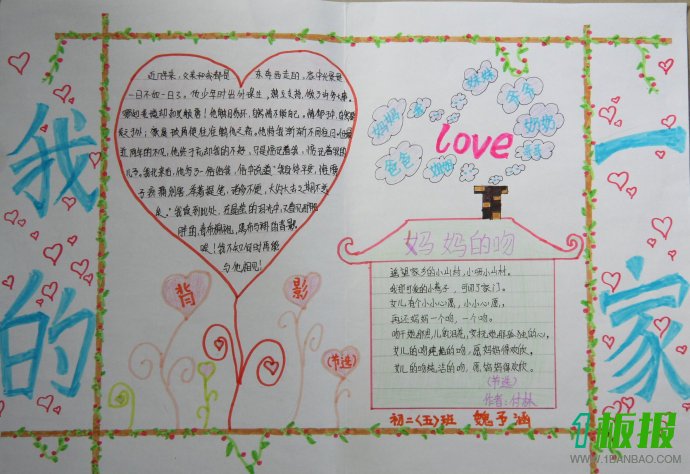 我的
一家
近几年来，父亲和我都是 东奔西走的，家中光景是
一日不如一日了。他少年时出外谋生，独立支持，做了许多大事。
哪知老境却如此颓唐！他触目伤怀，自然情不能自已。情郁于中，自然要
发之于外；家庭琐屑便往往触他之怒。他待我渐渐不同往日。但最
近两年的不见，他终于忘却我的不好，只是惦记着我，惦记着我的
儿子。我北来后，他写了一信给我，信中说道“我身体平安，惟膀
子疼痛厉害，举箸提笔，诸多不便，大约大去之期不远
矣。”我读到此处，在晶莹的泪光中，又看见那肥
胖的青布棉袍，黑布马褂的背影。
唉！我不知何时再能
与他相见！
背
影
(节选)
妈妈
爸爸
love
妈妈的吻
遥望家乡的小山村，小呀小山村。
我那可爱的小燕子，可回了家门。
女儿有个小小心愿，小小心愿，
再还妈妈一个吻，一个吻。
女儿的吻纯洁的吻，愿妈妈得欢欣。
(节选)
作者：付林
初二〈五〉班 魏予涵
1板报
WWW.1BANBAO.COM